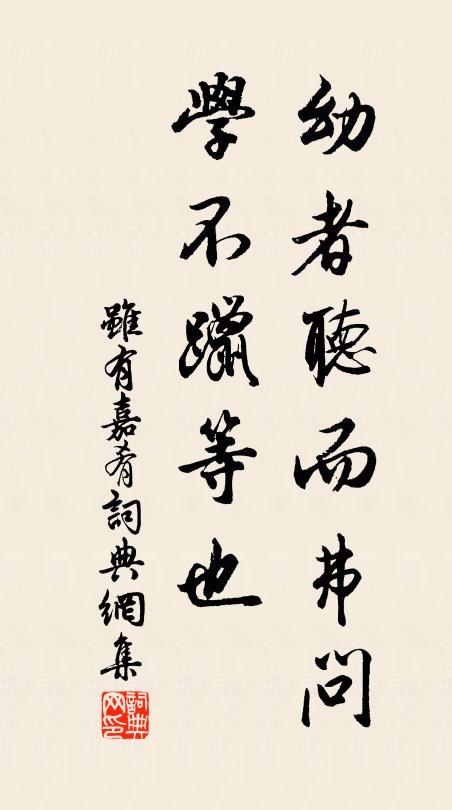 幼者聽而弗問
學不躐等也
雖有嘉肴詞典網集
詞典
网印